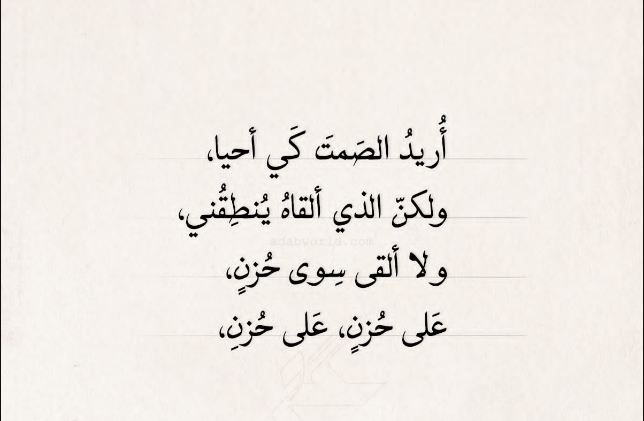 أُريدُ الصَمتَ كَي أحيا،
ولكنّ الذي ألقاهُ يُنطِقُني،
adabworld.com
ولا ألقى سِوى حُزنٍ،
عَلى حُزنٍ، عَلى حُزنِ،